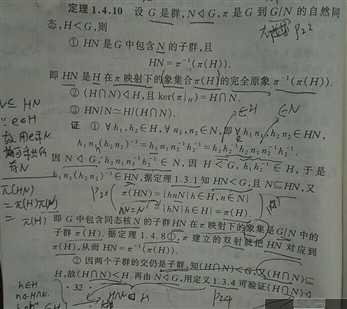 定理 1.4.10 设 G 是群,N◁G,π 是 G 到 G/N 的自然同
态,H<G,则
① HN 是 G 中包含 N 的子群,且
HN=π⁻¹(π(H)).
即 HN 是 H 在 π 映射下的象集合 π(H)的完全原象 π⁻¹(π(H)).
② (H∩N)◁H,且 ker(π|H)=H∩N.
③ HN/N≃H/(H∩N).
证 ① ∀h₁,h₂∈H,∀n₁,n₂∈N,即 ∀h₁n₁,h₂n₂∈HN,
h₁n₁(h₂n₂)⁻¹=h₁n₁n₂⁻¹h₂⁻¹=h₁h₂⁻¹h₂n₁n₂⁻¹h₂⁻¹.
因 N◁G,h₂n₁n₂⁻¹h₂⁻¹∈N,因 H<G,h₁h₂⁻¹∈H,于是
h₁n₁(h₂n₂)⁻¹∈HN,据定理 1.3.1 知 HN<G,且 N⊆HN,又
π(HN)={hnN|h∈H,n∈N}
={hN|h∈H}=π(H),
即 G 中包含同态核 N 的子群 HN 在 π 映射下的象集是 G/N 中的
子群 π(H),据定理 1.4.8①,π 建立的双射就把 HN 对应到
π(H),从而 HN=π⁻¹(π(H)).
② 因两个子群的交仍是子群,知(H∩N)<G,又(H∩N)⊆
H,故(H∩N)<H.再由 N◁G,用定义 1.3.4 可验证(H∩N)◁
· 32 ·
∈H
∈N
π(HN)
=π(H)
P24